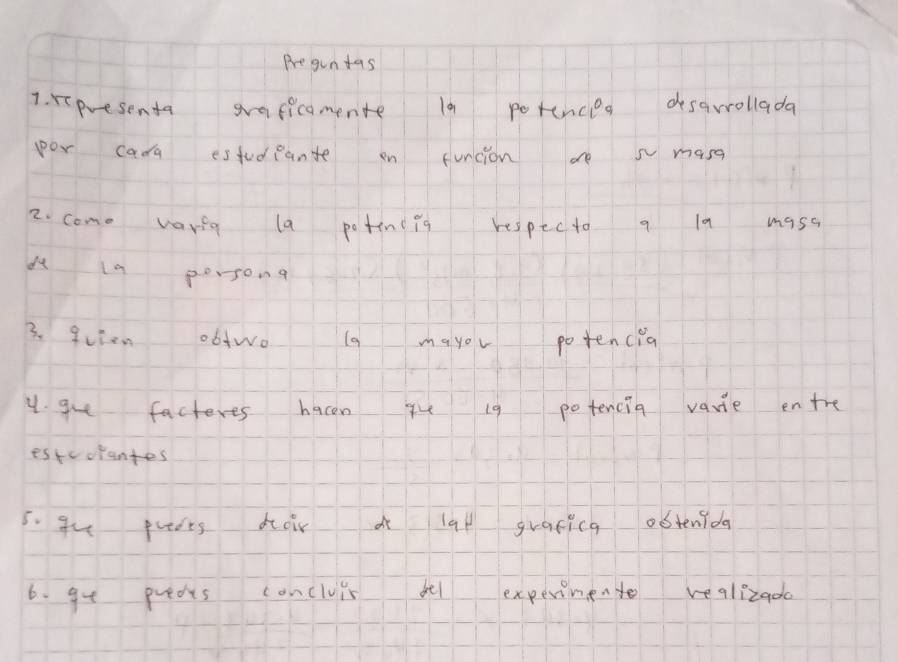 Preguntas
1. representa graficamente la potencia desarrollada
por cada estudiante en funcion de su masa
2. como varia la potencia respecto a la masa
de la persona
3. quien obtuvo la mayor potencia
4. que factores hacen que la potencia varie entre
estudiantes
5. que puedes decir de la grafica obtenida
6. que puedes concluir del experimento realizado